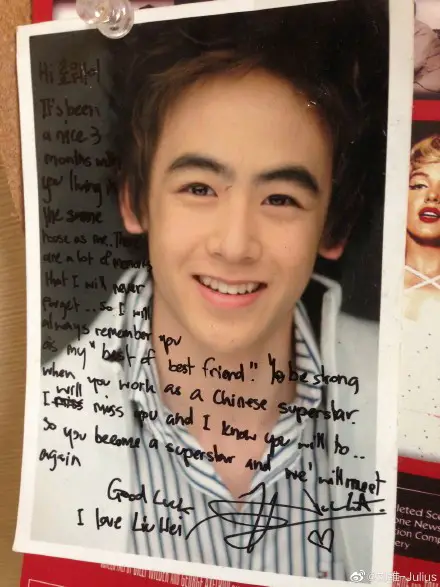 Hi
It's been
a nice 3
months with
you living in
the same
house as me.. There
are a lot of memories
that I will never
forget... so I will
always remember you
as my "best of best friend." To be strong
when you work as a Chinese superstar.
I will miss you and I know you will to..
So you become a superstar and we' will meet
again
Good Luck
I love Liu Wei
-Julius